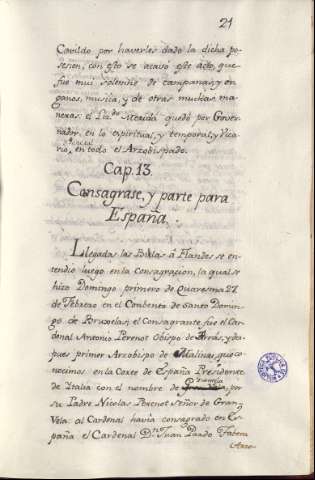 21
Cavildo por haverles dado la dicha po-
sesion, con esto se acavó este acto, que
fue mui solemne de campanas, y or-
ganos, musica, y de otras muchas ma-
neras: el Lic.do quedó por Gover-
nador, en lo espiritual, y temporal, y Vica-
rio, en todo el Arzobispado.
Cap. 13.
Consagrase, y parte para
España.
Llegadas las Bulas à Flandes se en-
tendio luego en la Consagracion, la qual se
hizo Domingo primero de Quaresma 27
de Febrero en el Combento de Santo Domin-
go de Bruselas; el Consagrante fue el Car-
denal Antonio Perenot Obispo de Arrás, y des-
pues primer Arzobispo de Malinas, que co-
nocimos en la Corte de España Presidente
de Italia con el nombre de por
su Padre Nicolas Perenot Señor de Gran-
Vela: al Cardenal havia consagrado en Es-
paña el Cardenal D.n Juan Pardo Tabera
Arzo-